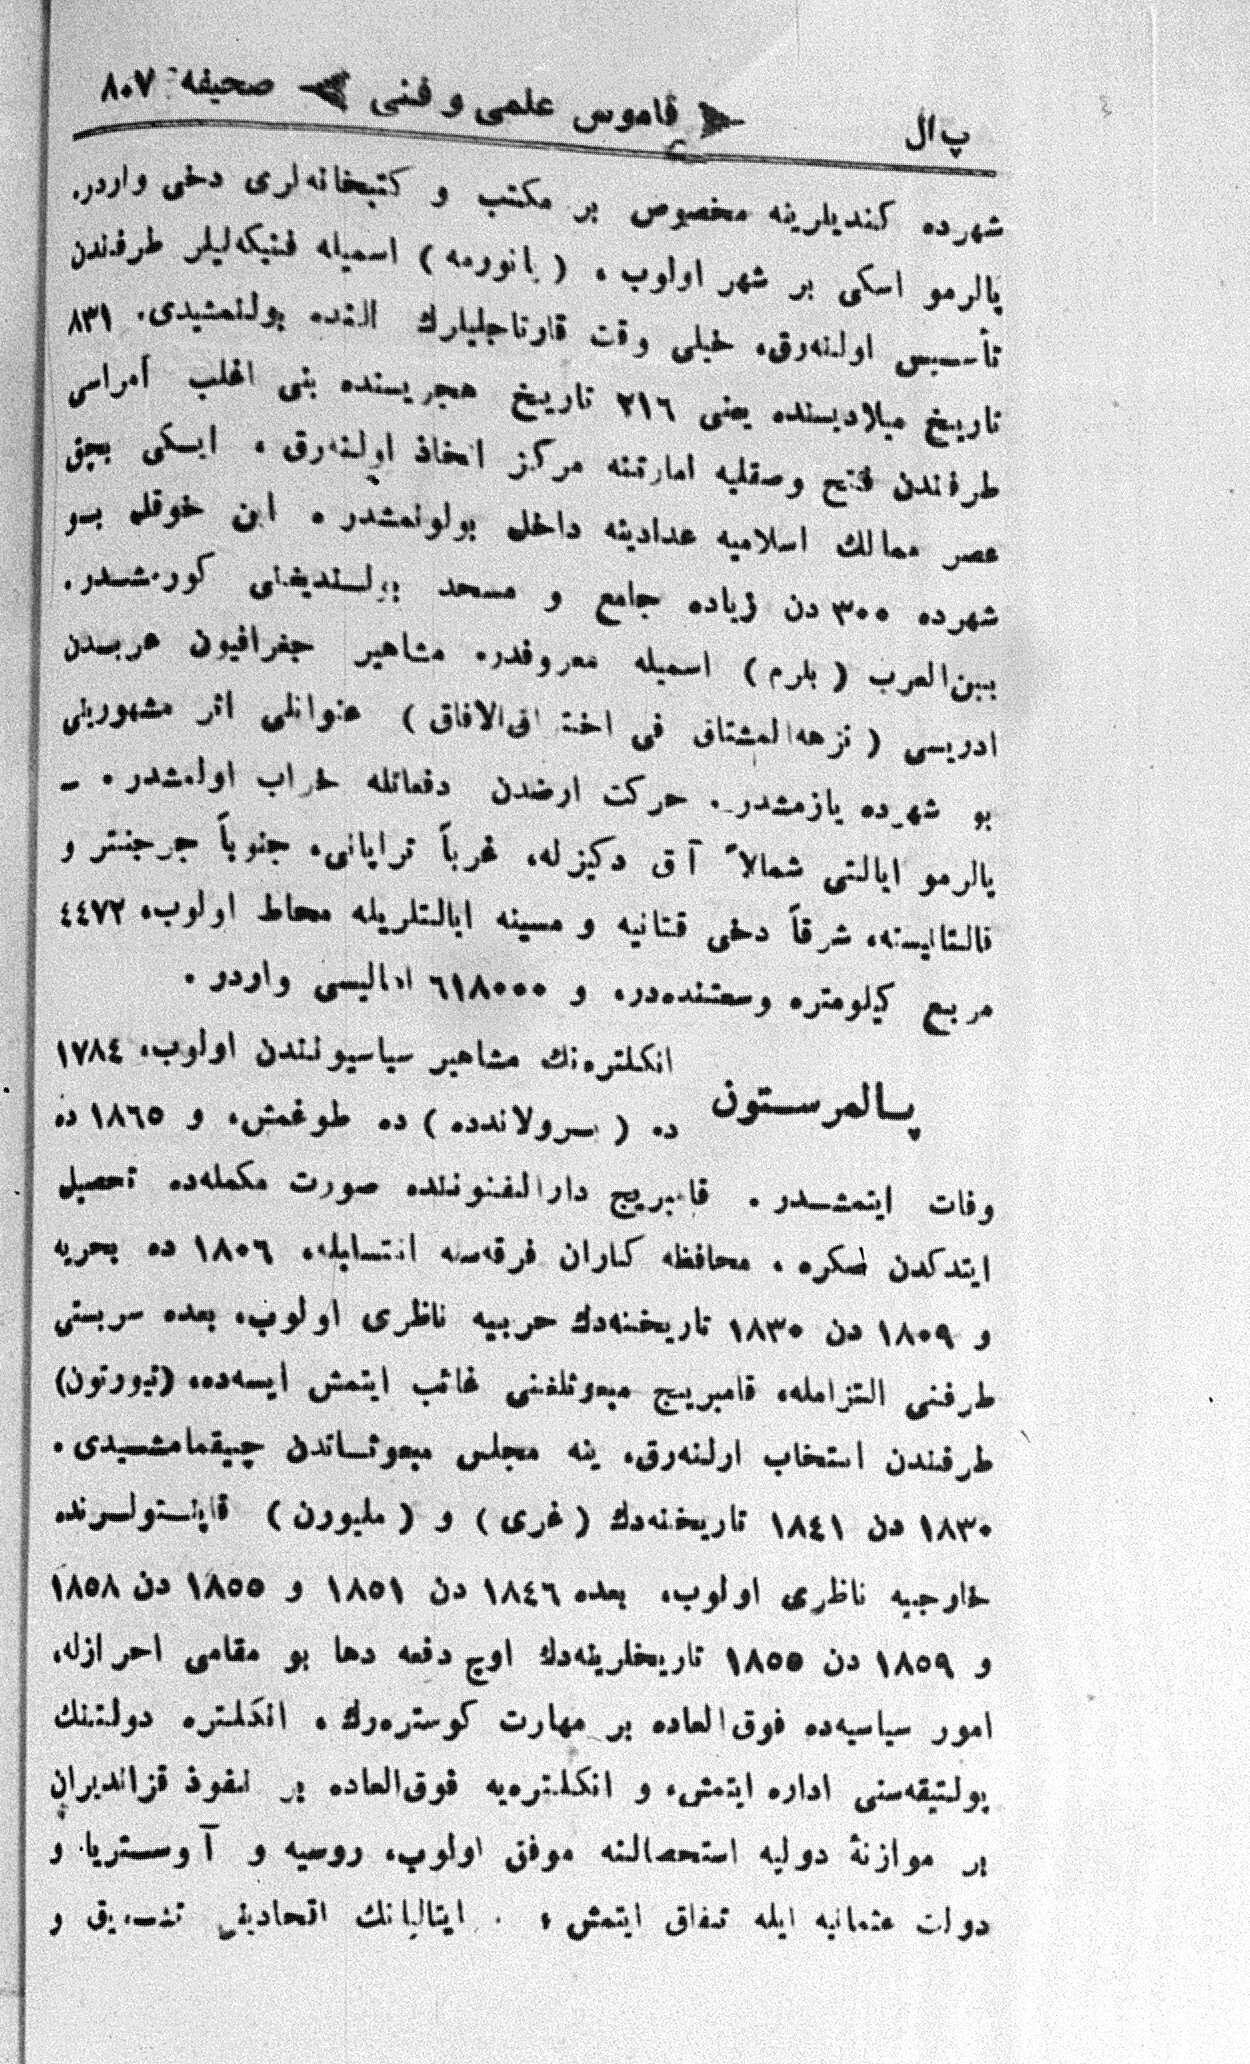 پ ال قاموس علمی و فنی صحیفه: ٨٠٧
شهرده کندیلرینه مخصوص بر مکتب و کتبخانه‌لری دخی واردر.
پالرمو اسکی بر شهر اولوب، (پانورمه) اسمیله فنیکه‌لیلر طرفندن
تأسیس اولنه‌رق، خیلی وقت قارتاجلیلرك النده بولنمشیدی. ٨٣١
تاریخ میلادیسنده یعنی ٢١٦ تاریخ هجریسنده بنی اغلب أمراسی
طرفندن فتح وصقلیه امارتنه مرکز اتخاذ اولنه‌رق، ایکی بچق
عصر ممالك اسلامیه عدادینه داخل بولونمشدر. ابن حوقل بو
شهرده ٣٠٠ دن زیاده جامع و مسجد بولندیغنی کورمشدر.
بین‌العرب (بلرم) اسمیله معروفدر. مشاهیر جغرافیون عربدن
ادریسی (نزهه‌المشتاق فی اختراق‌الافاق) عنوانلی اثر مشهورینی
بو شهرده یازمشدر. حرکت ارضدن دفعاتله خراب اولمشدر. ـ
پالرمو ایالتی شمالاً آق دکیزله، غرباً تراپانی، جنوباً جرجنتر و
قالتانیسته، شرقاً دخی قتانیه و مسینه ایالتلریله محاط اولوب، ٤٤٧٢
مربع کیلومتره وسعتنده‌در، و ٦١٨٠٠٠ اهالیسی واردر.
پـالمرستون انکلتره‌نك مشاهیر سیاسیونندن اولوب، ١٧٨٤
ده (برولاندده) ده طوغمش، و ١٨٦٥ ده
وفات ایتمشدر. قامبریج دارالفنوننده صورت مکمله‌ده تحصیل
ایتدکدن صکره، محافظه کاران فرقه‌سنه انتسابله، ١٨٠٦ ده بحریه
و ١٨٠٩ دن ١٨٣٠ تاریخنه‌دك حربیه ناظری اولوب، بعده سربستی
طرفنی التزامله، قامبریج مبعوثلغنی غائب ایتمش ایسه‌ده، (تیورتون)
طرفندن انتخاب اولنه‌رق، ینه مجلس مبعوثاندن چیقمامشیدی.
١٨٣٠ دن ١٨٤١ تاریخنه‌دك (غری) و (ملبورن) قابنتولرنده
خارجیه ناظری اولوب، بعده ١٨٤٦ دن ١٨٥١ و ١٨٥٥ دن ١٨٥٨
و ١٨٥٩ دن ١٨٥٥ تاریخلرینه‌دك اوچ دفعه دها بو مقامی احرازله،
امور سیاسیه‌ده فوق‌العاده بر مهارت کوستره‌رك، انکلتره دولتنك
پولتیقه‌سنی اداره ایتمش، و انکلتره‌یه فوق‌العاده بر نفوذ قزاندیران
بر موازنهٔ دولیه استحصالنه موفق اولوب، روسیه و آوستریا و
دولت عثمانیه ایله تفاق ایتمش، ایتالیانك اتحادینی تصدیق و